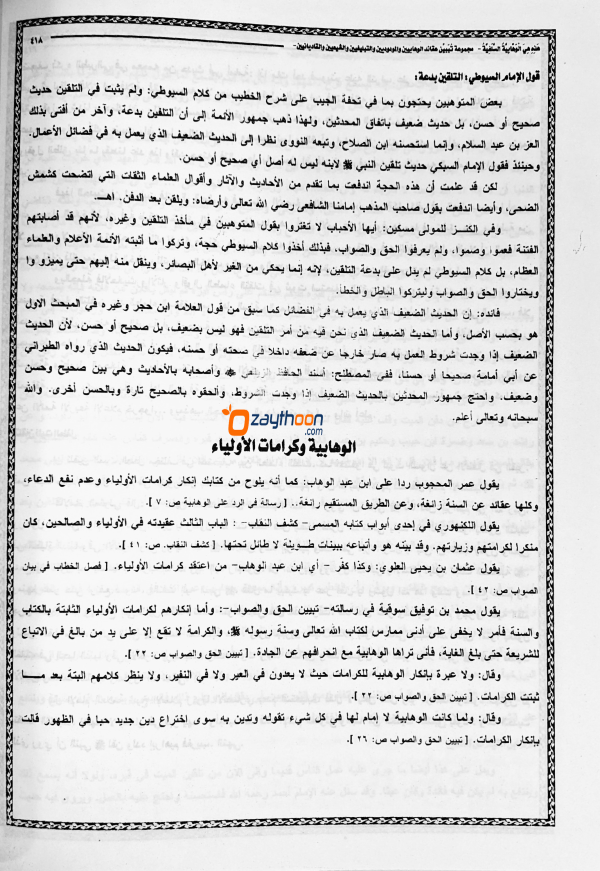 هذه هي الوهابية السلفية - مجموعة تبيين عقائد الوهابيين والمودوديين والتبليغيين والشيعيين والقاديانيين- ٤١٨
قول الإمام السيوطي: التلقين بدعة:
بعض المتوهبين يحتجون بما في تحفة الجيب على شرح الخطيب من كلام السيوطي: ولم يثبت في التلقين حديث
صحيح أو حسن، بل حديث ضعيف باتفاق المحدثين، ولهذا ذهب جمهور الأئمة إلى أن التلفين بدعة، وآخر من أفتى بذلك
العز بن عبد السلام، وإنما استحسنه ابن الصلاح، وتبعه النووى نظرا إلى الحديث الضعيف الذي يعمل به في فضائل الأعمال.
وحينئذ فقول الإمام السبكي حديث تلقين النبي ﷺ لابنه ليس له أصل أي صحيح أو حسن.
لكن قد علمت أن هذه الحجة اندفعت بما تقدم من الأحاديث والآثار وأقوال العلماء الثقات التي اتضحت كشمش
الضحى، وأيضا اندفعت بقول صاحب المذهب إمامنا الشافعى رضي الله تعالى وأرضاه: ويلقن بعد الدفن. اهـ.
وفي الكنز للمولى مسكين: أيها الأحباب لا تغتروا بقول المتوهبين في مأخذ التلقين وغيره، لأنهم قد أصابتهم
الفتنة فعموا وصموا، ولم يعرفوا الحق والصواب، فبذلك أخذوا كلام السيوطي حجة، وتركوا ما أثبته الأئمة الأعلام والعلماء
العظام، بل كلام السيوطي لم يدل على بدعة التلقين، لإنه إنما يحكى من الغير لأهل البصائر، وينقل منه إليهم حتى يميزو وا
ويختاروا الحق والصواب وليتركوا الباطل والخطأ.
فائده: إن الحديث الضعيف الذي يعمل به في الفضائل كما سبق من قول العلامة ابن حجر وغيره في المبحث الاول
هو بحسب الأصل، وأما الحديث الضعيف الذي نحن فيه من أمر التلقين فهو ليس بضعيف، بل صحيح أو حسن، لأن الحديث
الضعيف إذا وجدت شروط العمل به صار خارجا عن ضعفه داخلا في صحته أو حسنه، فيكون الحديث الذي رواه الطبراني
عن أبي أمامة صحيحا أو حسنا، ففى المصطلح: أسند الحافظ ﷺ وأصحابه بالأحاديث وهي بين صحيح وحسن
وضعيف. واحتج جمهور المحدثين بالحديث الضعيف إذا وجدت الشروط، وألحقوه بالصحيح تارة وبالحسن أخرى. والله
سبحانه وتعالى أعلم.
Ozaythoon
.com
الوهابية وكرامات الأولياء
يقول عمر المحجوب ردا على ابن عبد الوهاب: كما أنه يلوح من كتابك إنكار كرامات الأولياء وعدم نفع الدعاء،
وكلها عقائد عن السنة زائغة، وعن الطريق المستقيم رائغة.. [رسالة في الرد على الوهابية ص: ٧ ].
يقول اللكنهوري في إحدى أبواب كتابه المسمى- كشف النقاب- : الباب الثالث عقيدته في الأولياء والصالحين، كان
منكرا لكرامتهم وزيارتهم. وقد بيته هو وأتباعه ببينات طويلة لا طائل تحتها. [ كشف النقاب. ص: ٤١ ].
يقول عثمان بن يحيى العلوي: وكذا كفر - أي ابن عبد الوهاب- من اعتقد كرامات الأولياء. [ فصل الخطاب في بيان
الصواب ص: ٤٢ ].
يقول محمد بن توفيق سوقية في رسالته- تبيين الحق والصواب-: وأما إنكارهم لكرامات الأولياء الثابتة بالكتاب
والسنة فأمر لا يخفى على أدنى ممارس لكتاب الله تعالى وسنة رسوله ﷺ، والكرامة لا تقع إلا على يد من بالغ في الاتباع
للشريعة حتى بلغ الغاية، فأنى تراها الوهابية مع انحرافهم عن الجادة. [ تبيين الحق والصواب ص: ٢٢ ].
وقال: ولا عبرة بإنكار الوهابية للكرامات حيث لا يعدون في العير ولا في النفير، ولا ينظر كلامهم البتة بعد مـــا
ثبتت الكرامات. [ تبيين الحق والصواب ص: ٢٢ ].
وقال: ولما كانت الوهابية لا إمام لها في كل شيء تقوله وتدين به سوى اختراع دين جديد حبا في الظهور قالت
بإنكار الكرامات. [ تبيين الحق والصواب ص: ٢٦ ].